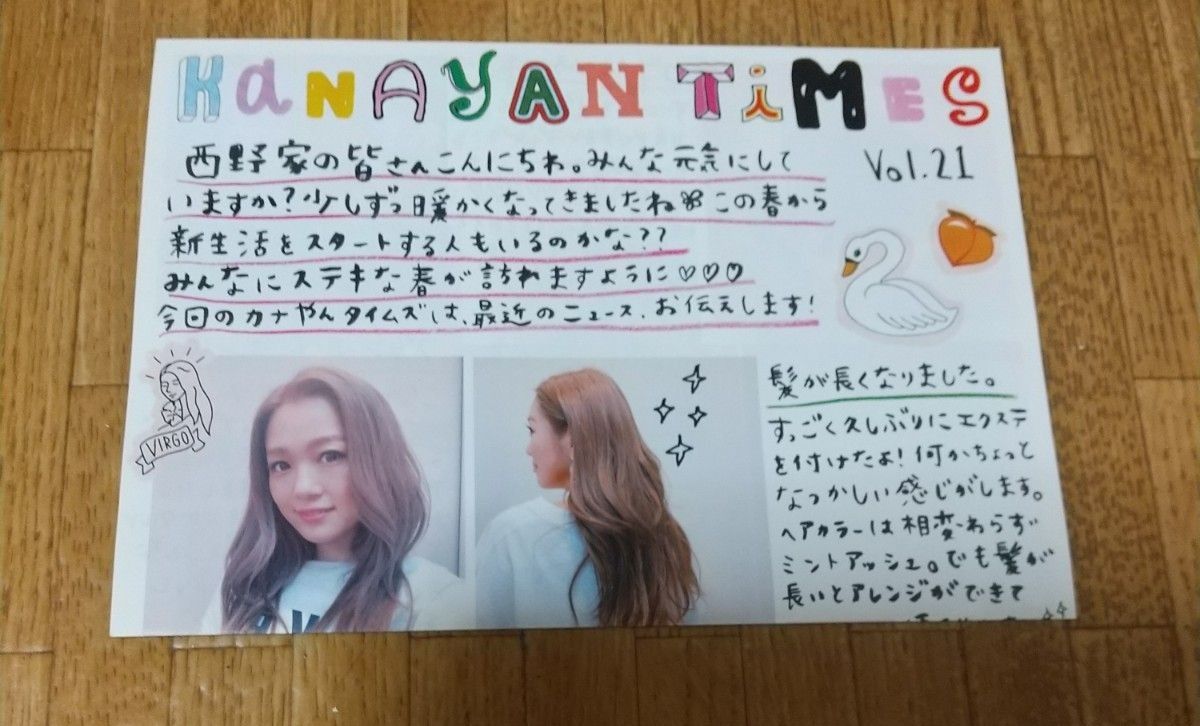 KaNAYAN TiMES
西野家の皆さんこんにちわ。みんな元気にして
Vol.21
いますか?少しずつ暖かくなってきましたね この春から
新生活をスタートする人もいるのかな??
みんなにステキな春が訪れますように♡♡♡
今回のカナやんタイムズは、最近のニュース、お伝えします!
VIRGO
髪が長くなりました。
すっごく久しぶりにエクステ
を付けたよ!何かちょっと
なつかしい感じがします。
ヘアカラーは相変わらず
ミントアッシュ。でも髪が
長いとアレンジができて